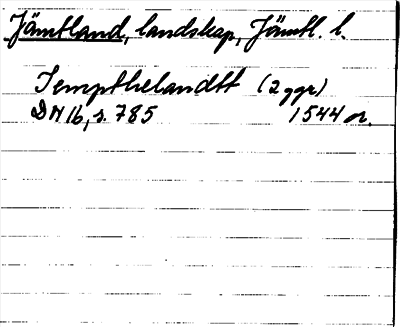 Jämtland, landskap, Jämtl. l.
Jempthelandtt (2 ggr)
DN 16, s. 785 1544 or.